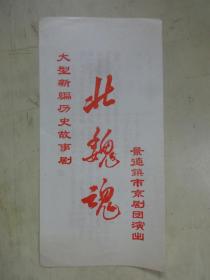 大型新编历史故事剧
北魏魂
景德镇市京剧团演出